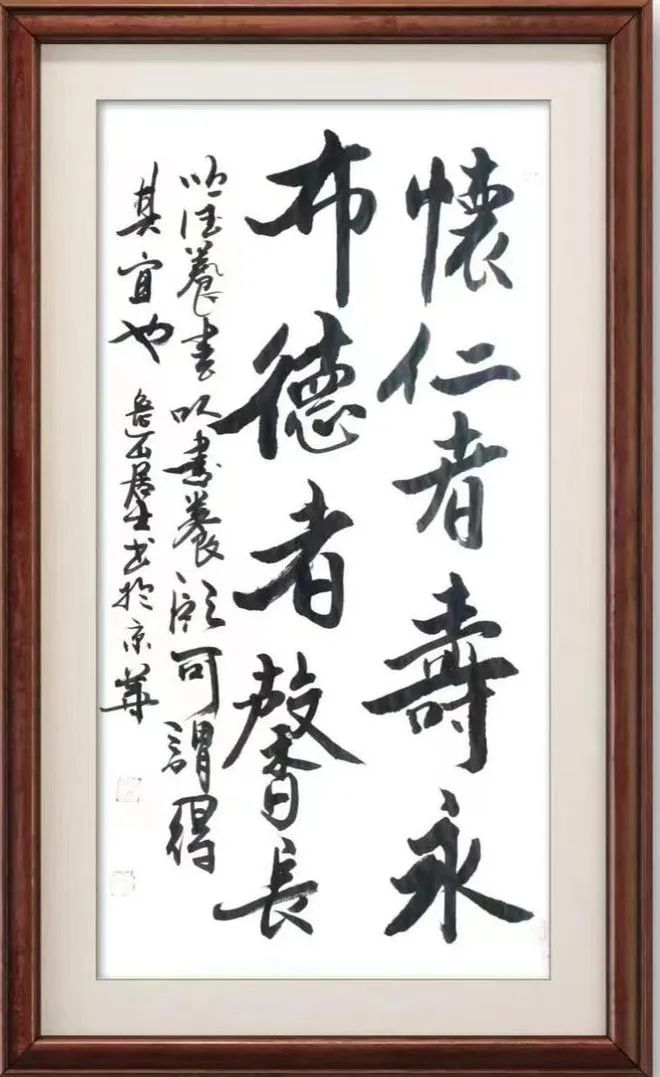 懷仁者壽永
布德者馨長
以德養書以書養可謂得
其宜也 居士书於京華